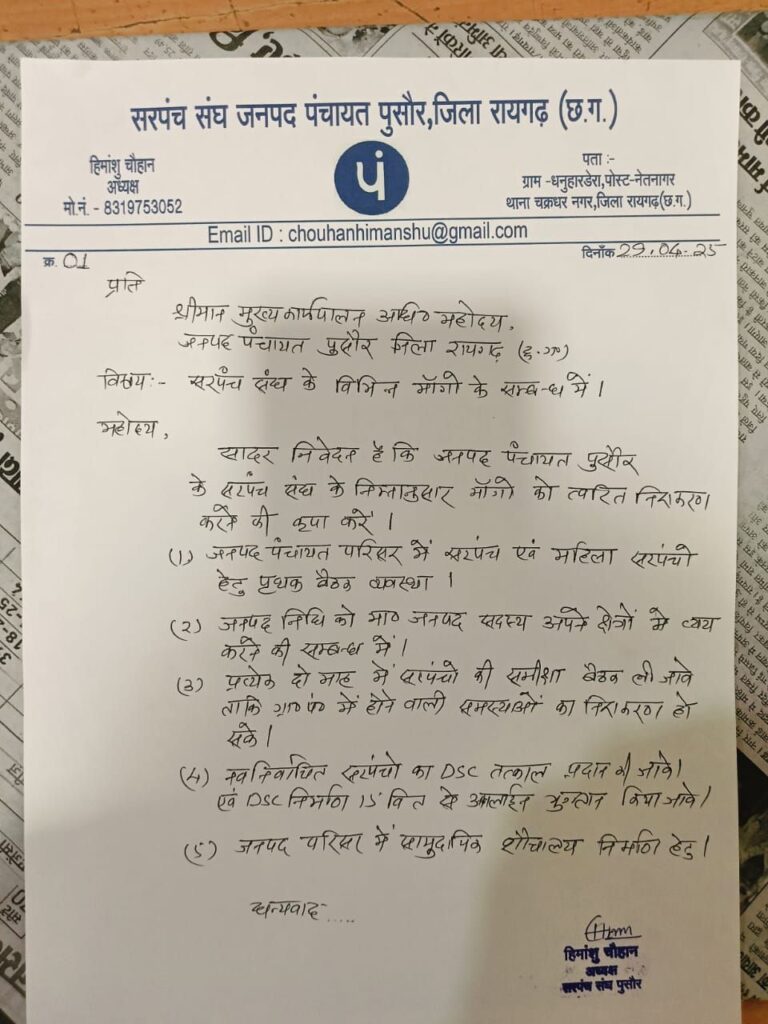 सरपंच संघ जनपद पंचायत पुसौर,जिला रायगढ़ (छ.ग.)
हिमांशु चौहान
अध्यक्ष
मो.नं. - 8319753052
पं
पता :-
ग्राम -धनुहारडेरा,पोस्ट-नेतनागर
थाना चक्रधर नगर,जिला रायगढ़(छ.ग.)
Email ID : chouhanhimanshu@gmail.com
क्र. 01
दिनाँक 29.04.25
प्रति
श्रीमान मुख्य कार्यपालन अधि० महोदय,
जनपद पंचायत पुसौर जिला रायगढ़ (छ.ग०)
विषय:- सरपंच संघ के विभिन्न माँगो के सम्बन्ध में।
महोदय,
सादर निवेदन है कि जनपद पंचायत पुसौर
के सरपंच संघ के निम्नानुसार माँगो को त्वरित निराकरण
करने की कृपा करें।
(1) जनपद पंचायत परिसर में सरपंच एवं महिला सरपंचो
हेतु पृथक बैठक व्यवस्था।
(2) जनपद निधि को मा० जनपद सदस्य अपने क्षेत्रों मे व्यय
करने की सम्बन्ध में।
(3) प्रत्येक दो माह में सरपंचो की समीक्षा बैठक ली जावे
ताकि ग्रा०पं० में होने वाली समस्याओं का निराकरण हो
सके।
(4) नव निर्वाचित सरपंचो का DSC तत्काल प्रदान की जावे।
एवं DSC निर्माण 15 वित्त से ऑनलाईन भुगतान किया जावे।
(5) जनपद परिसर में सामुदायिक शौचालय निर्माण हेतु।
धन्यवाद.....
हिमांशु चौहान
अध्यक्ष
सरपंच संघ पुसौर